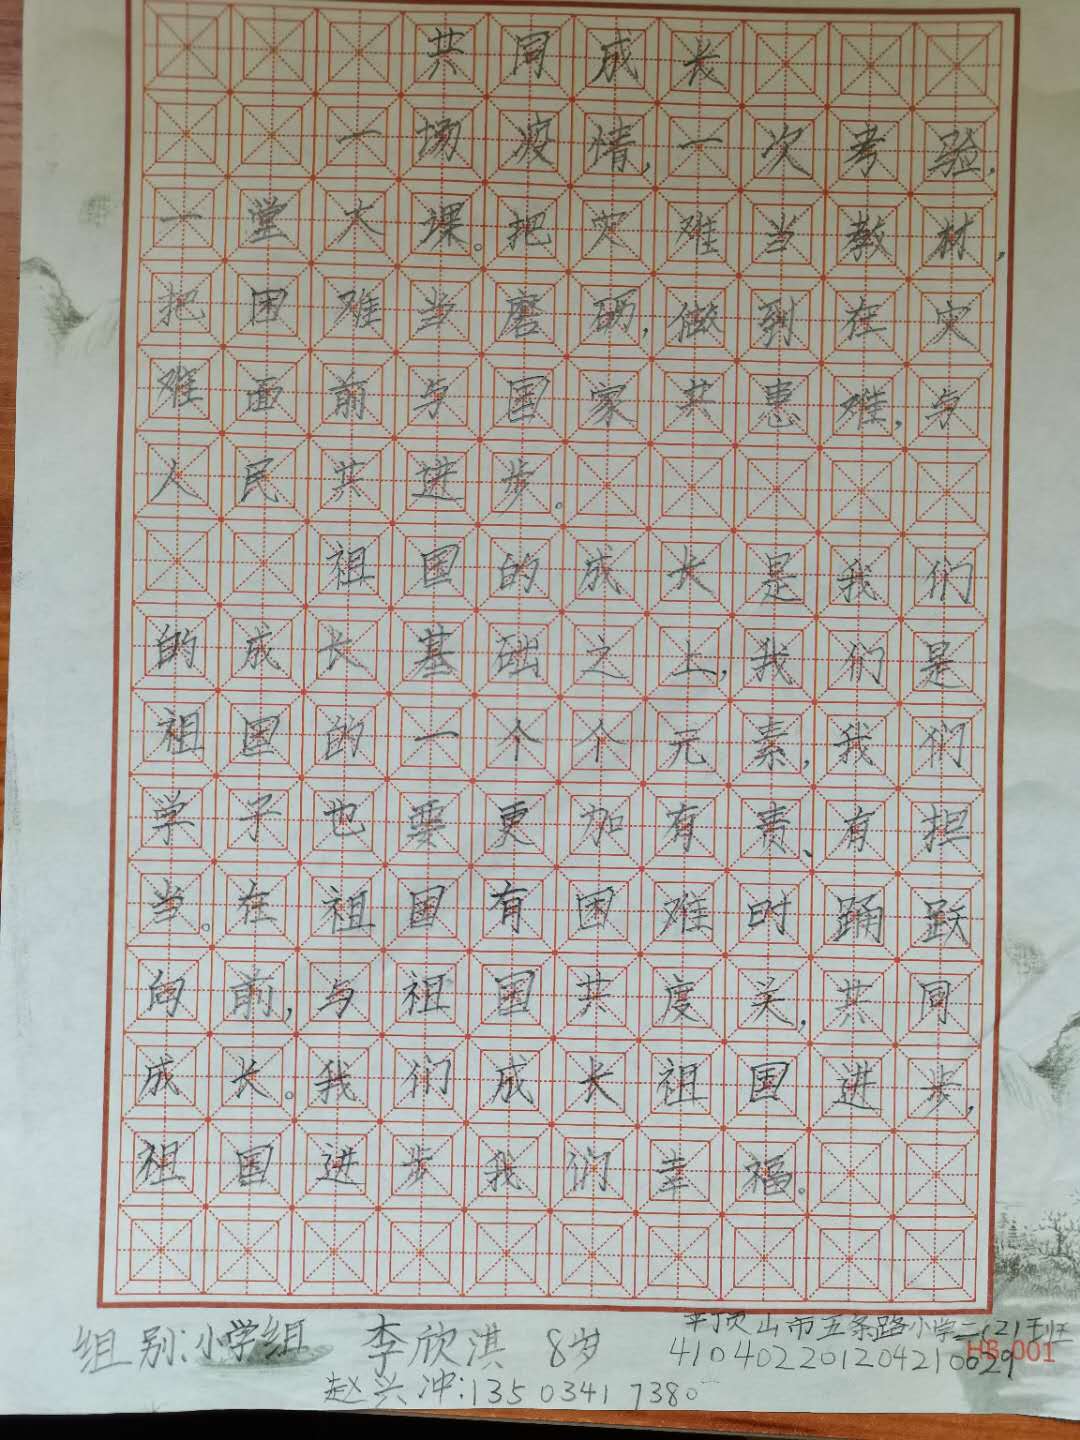 共同成长
一场疫情,一次考验,
一堂大课。把灾难当教材,
把困难当磨砺,做到在灾
难面前与国家共患难,与
人民共进步。
祖国的成长是我们
的成长基础之上,我们是
祖国的一个个元素,我们
学子也要更加有责、有担
当。在祖国有困难时踊跃
向前,与祖国共度关,共同
成长。我们成长祖国进步,
祖国进步我们幸福。
组别:小学组 李欣淇 8岁 平顶山市五条路小学二(2)班
410402201204210029
HB 001
赵兴冲:13503417380